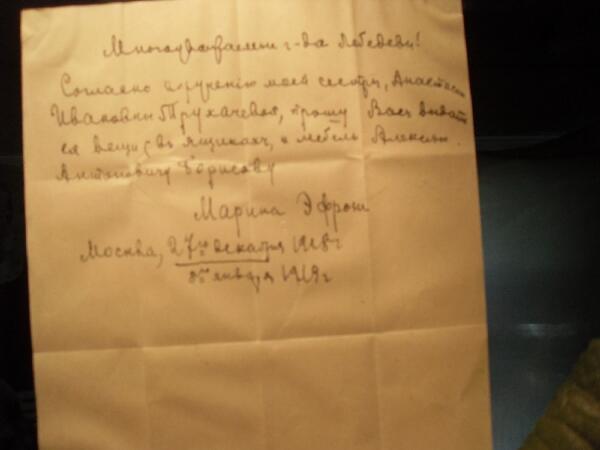 Многоуважаемые г-да Лебедевы!
Согласно поручению моей сестры, Анастасіи
Ивановны Трухачевой, прошу Васъ выдать
ея вещи, въ ящикахъ, и мебель Алексѣю
Антоновичу Борисову
Марина Эфронъ
Москва, 27го декабря 1918г
января 1919г